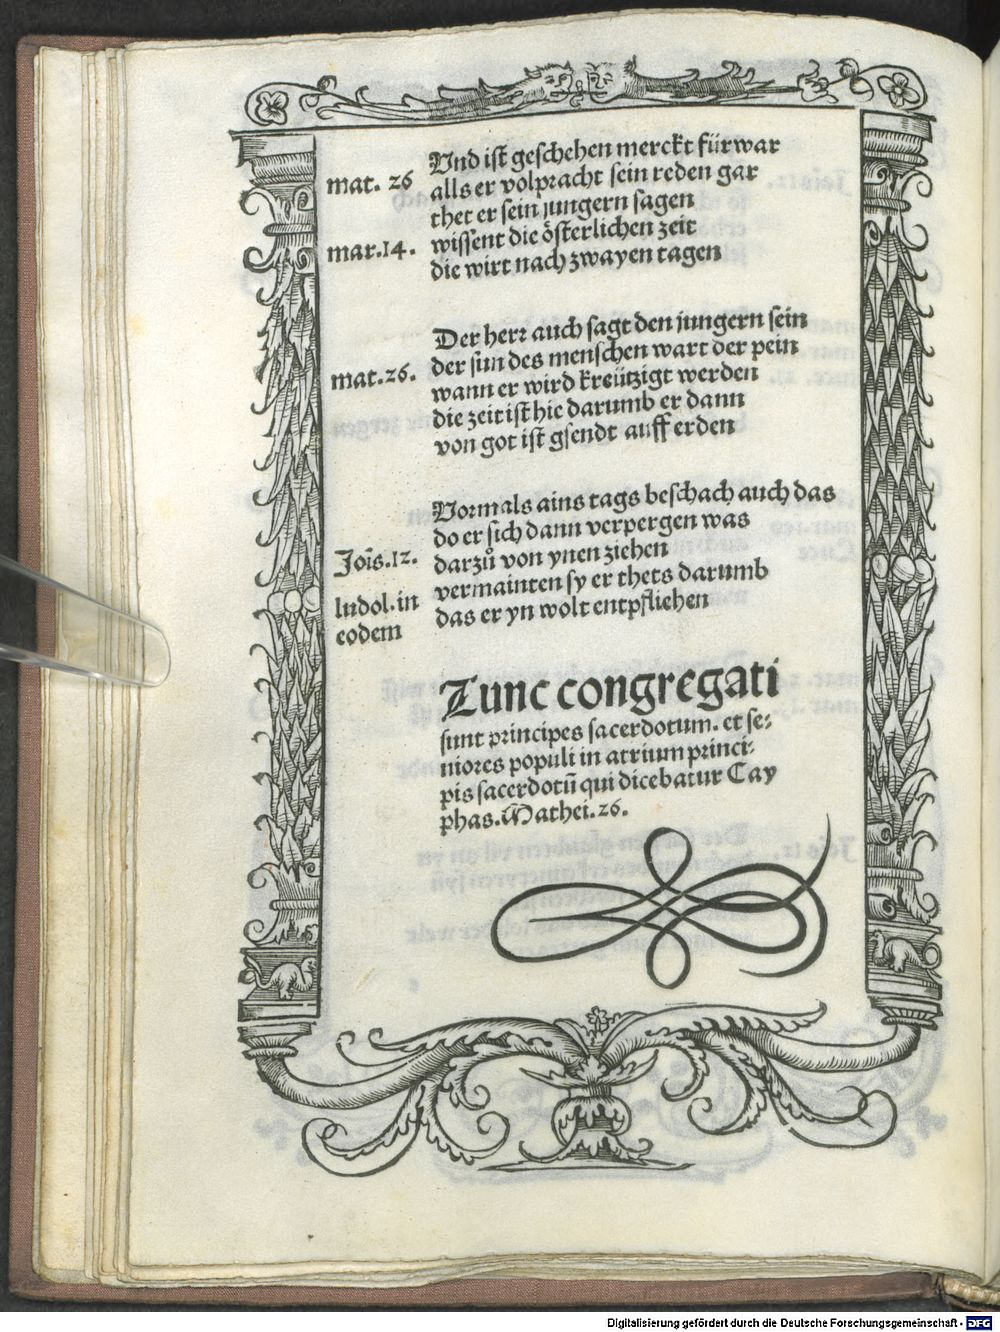 Vnd ist geschehen merckt fürwar
mat. 26 alls er volpracht sein reden gar
thet er sein jungern sagen
mar.14. wissent die österlichen zeit
die wirt nach zwayen tagen
Der herr auch sagt den jungern sein
der sun des menschen wart der pein
mat.26. wann er wird kreützigt werden
die zeit ist hie darumb er dann
von got ist gsendt auff erden
Vormals ains tags beschach auch das
do er sich dann verpergen was
Joīs.12. darzů von ynen ziehen
vermainten sy er thets darumb
ludol.in das er yn wolt entpfliehen
eodem
Tunc congregati
sunt principes sacerdotum. et se-
niores populi in atrium princi-
pis sacerdotū qui dicebatur Cay
phas. Mathei.26.
Digitalisierung gefördert durch die Deutsche Forschungsgemeinschaft - DFG